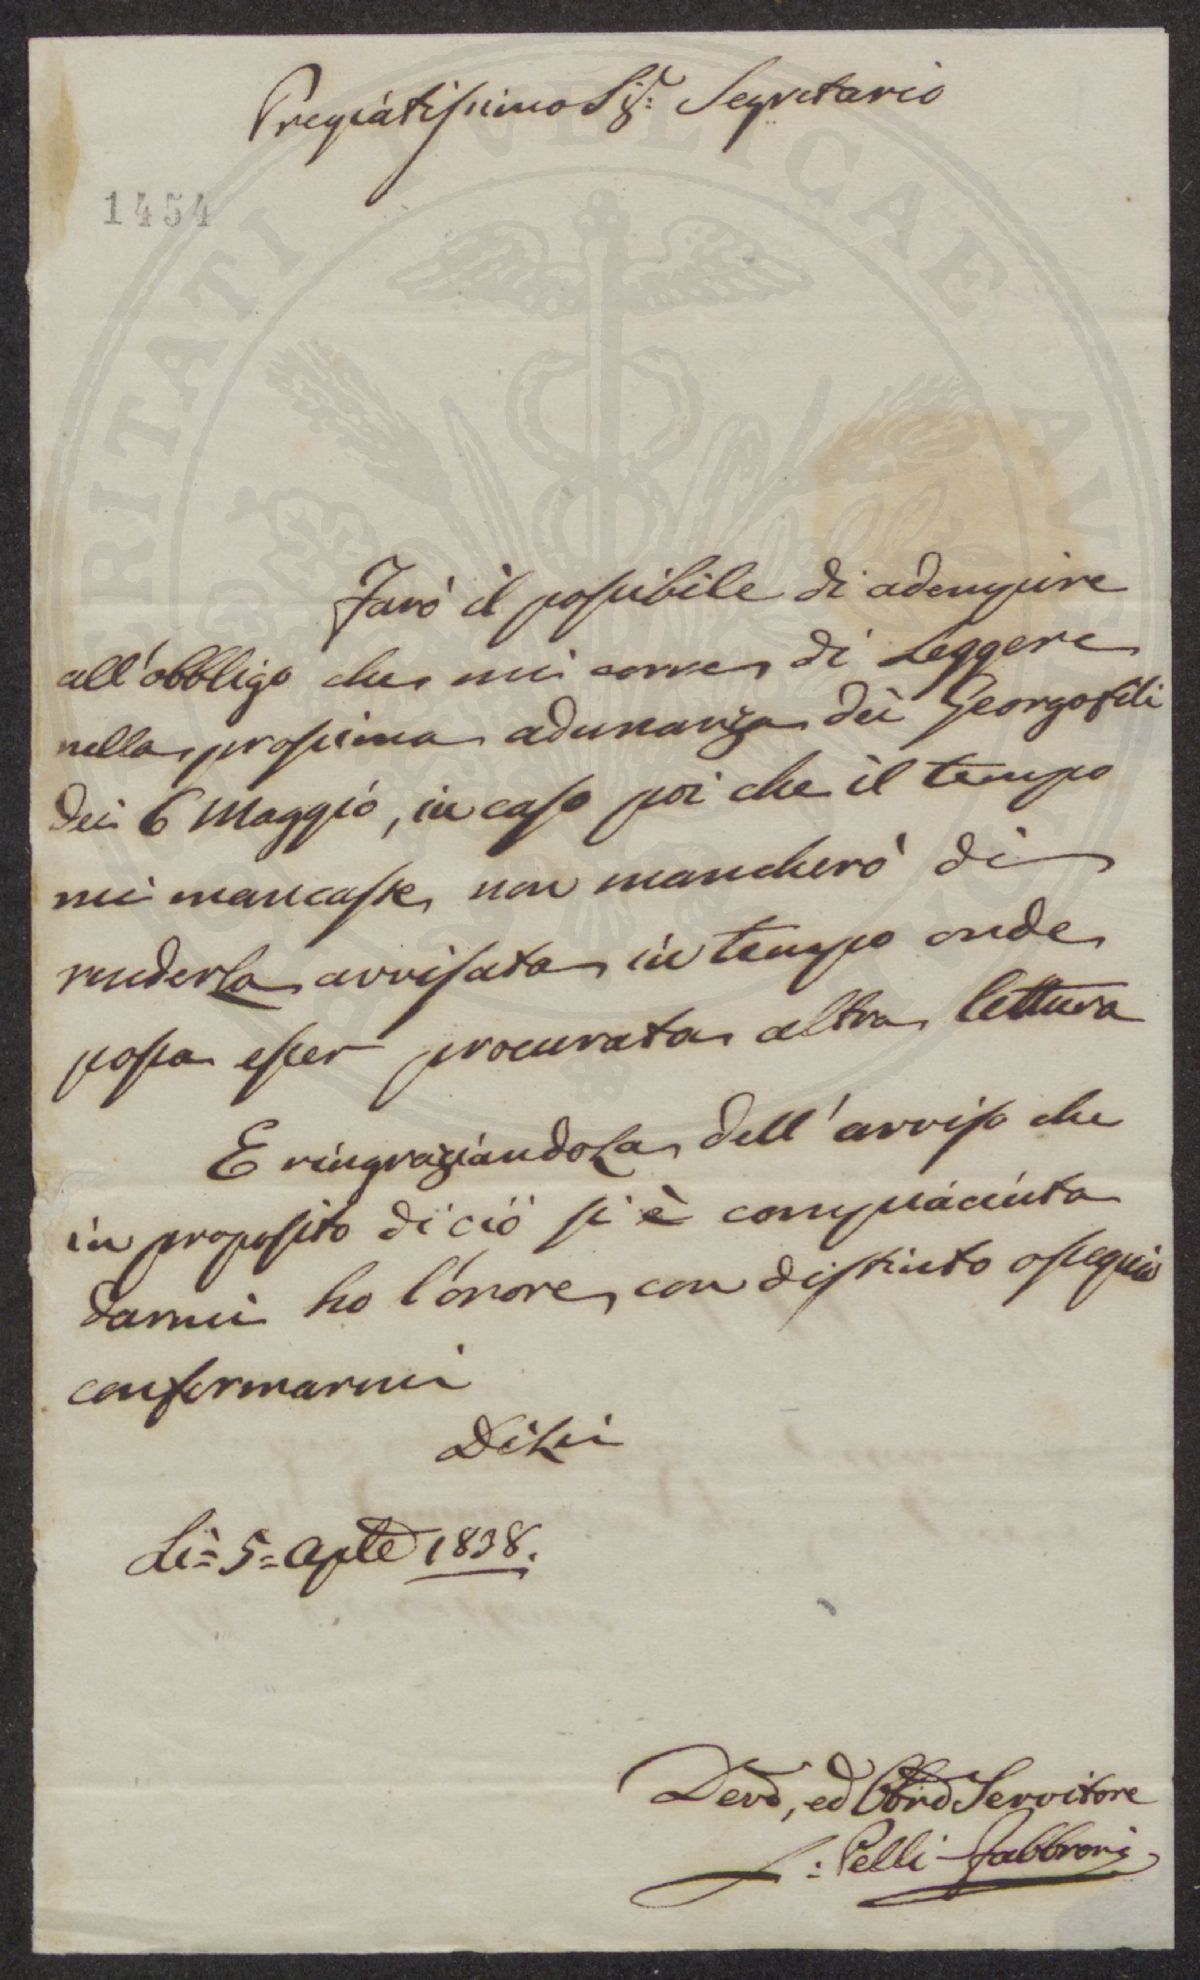 Pregiatissimo Sig.r Segretario
1454
Farò il possibile di adempire
all'obbligo che mi corre di Leggere
nella prossima adunanza dei Georgofili
dei 6 Maggio, in caso poi che il tempo
mi mancasse non mancherò di
renderLa avvisata in tempo onde
possa esser procurata altra lettura
E ringraziandoLa dell'avviso che
in proposito di ciò si è compiaciuta
darmi ho l'onore con distinto ossequio
confermarmi
Di Lei
Li = 5 = Aple 1838.
Devo, ed Obbmo Servitore
L: Pelli-Fabbroni